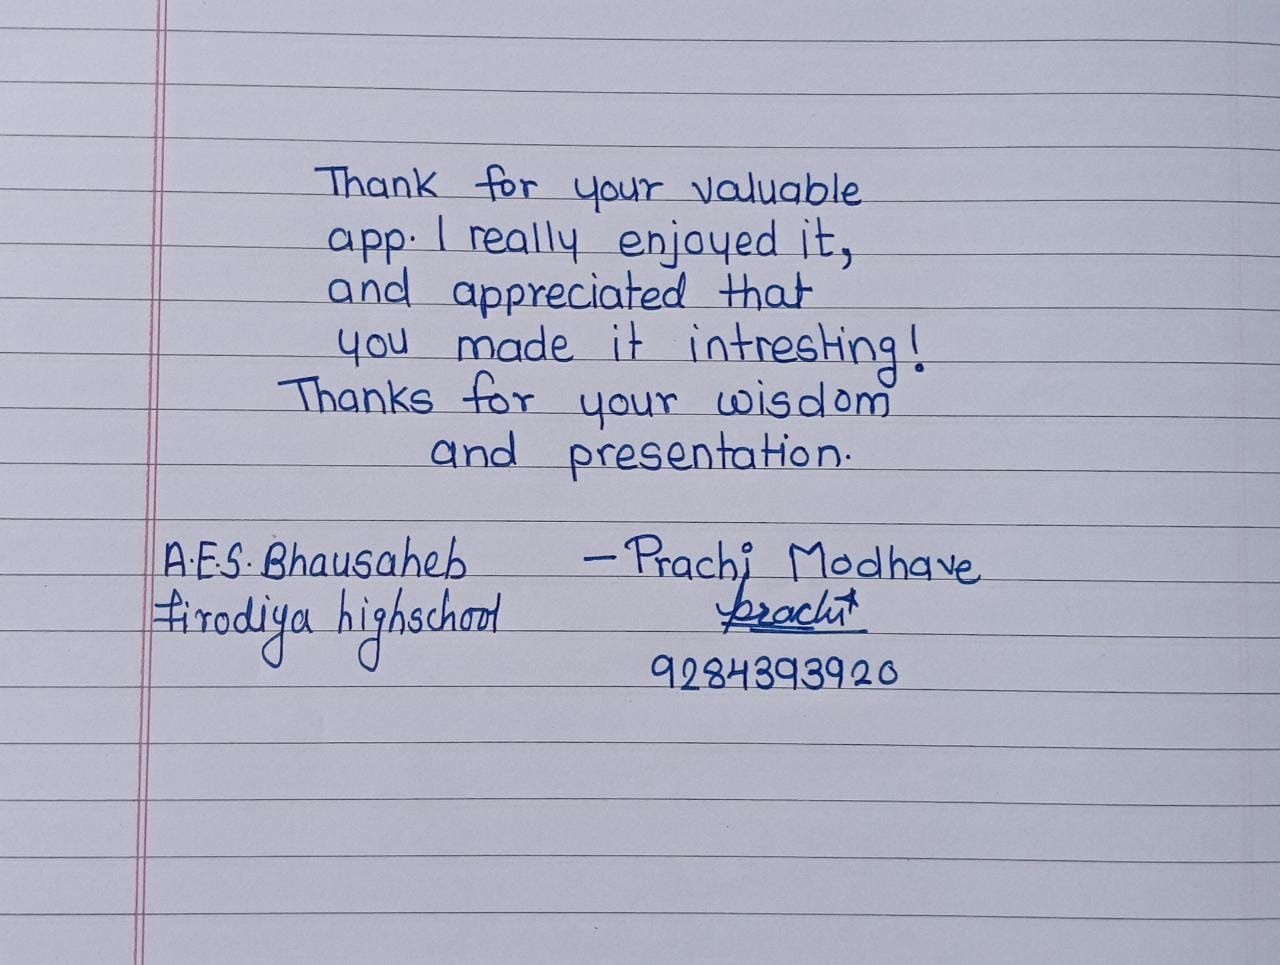 Thank for your valuable
app. I really enjoyed it,
and appreciated that
you made it intresting!
Thanks for your wisdom
and presentation.
A.E.S. Bhausaheb
firodiya highschool
- Prachi Modhave
Prachi
9284393920